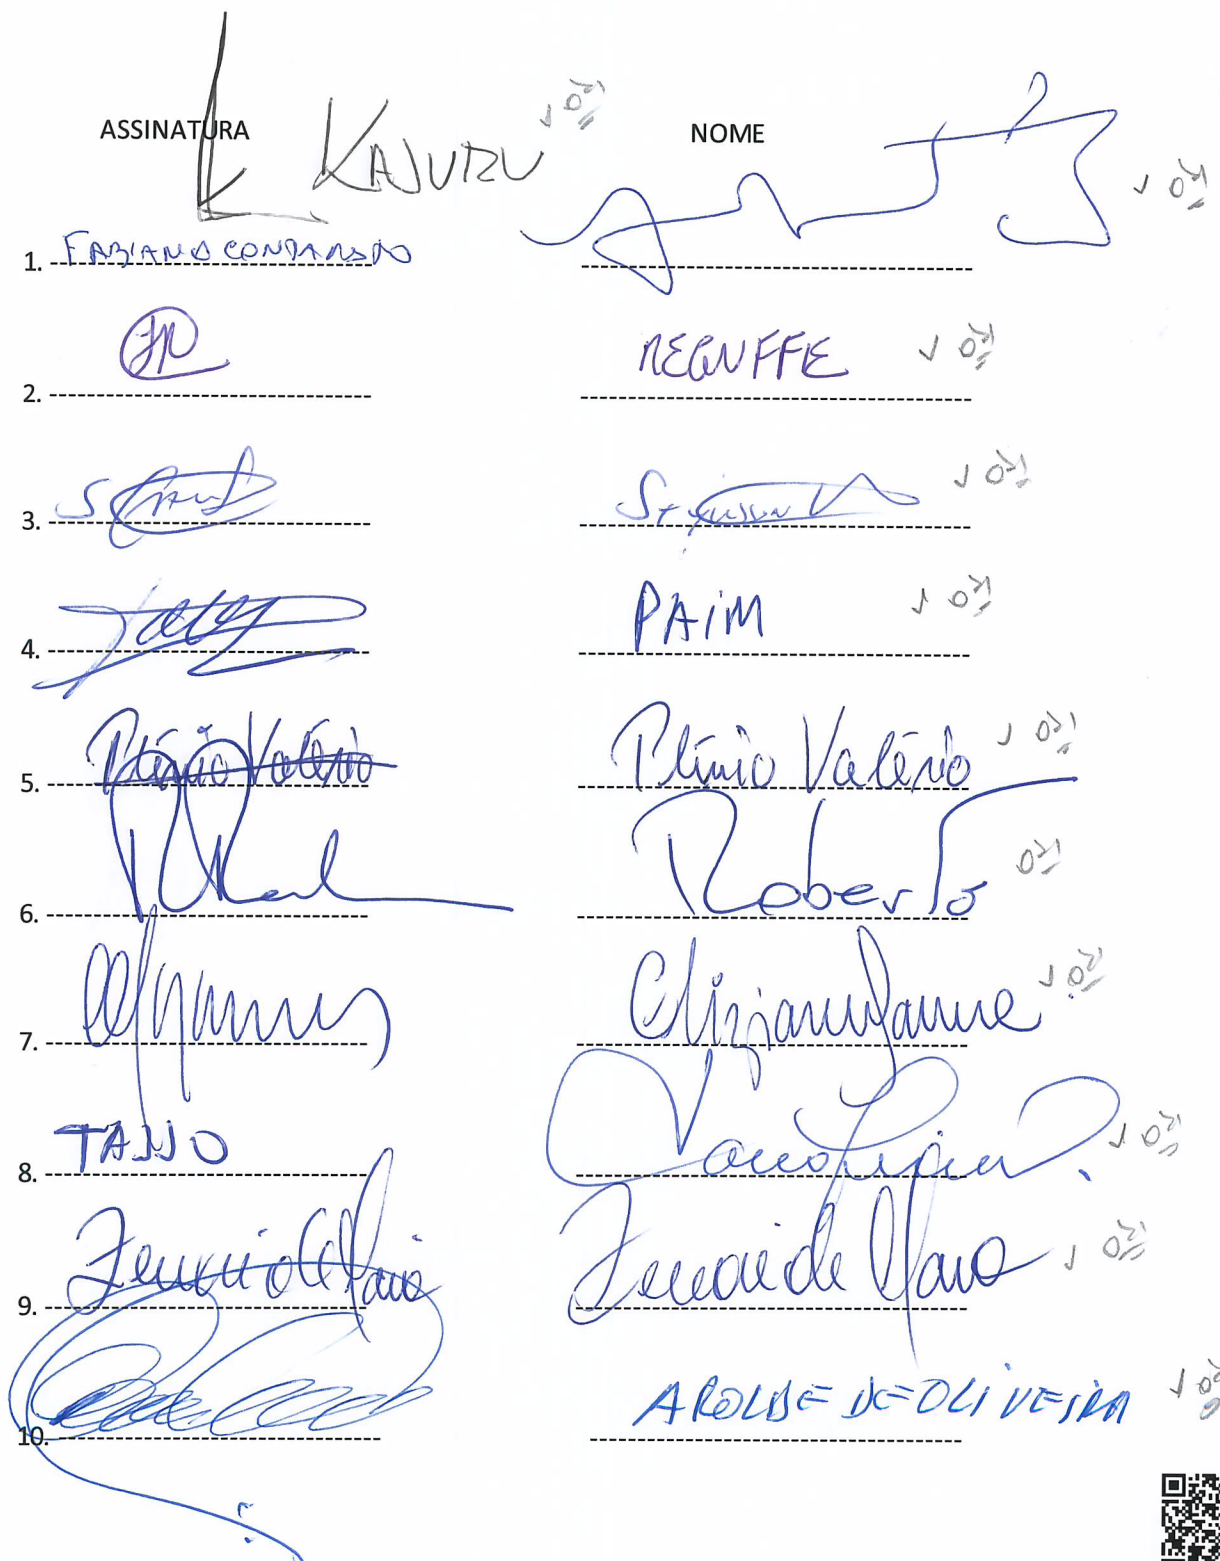 ASSINATURA KAJURU √ OK NOME √ OK
1. FABIANO CONTARATO
2. REGUFFE √ OK
3. Styvenson √ OK
4. PAIM √ OK
5. Plínio Valério Plínio Valério √ OK
6. Roberto OK
7. Eliziane Gama √ OK
8. TASSO √ OK
9. Zenaide Maia Zenaide Maia √ OK
10. AROLDE DE OLIVEIRA √ OK